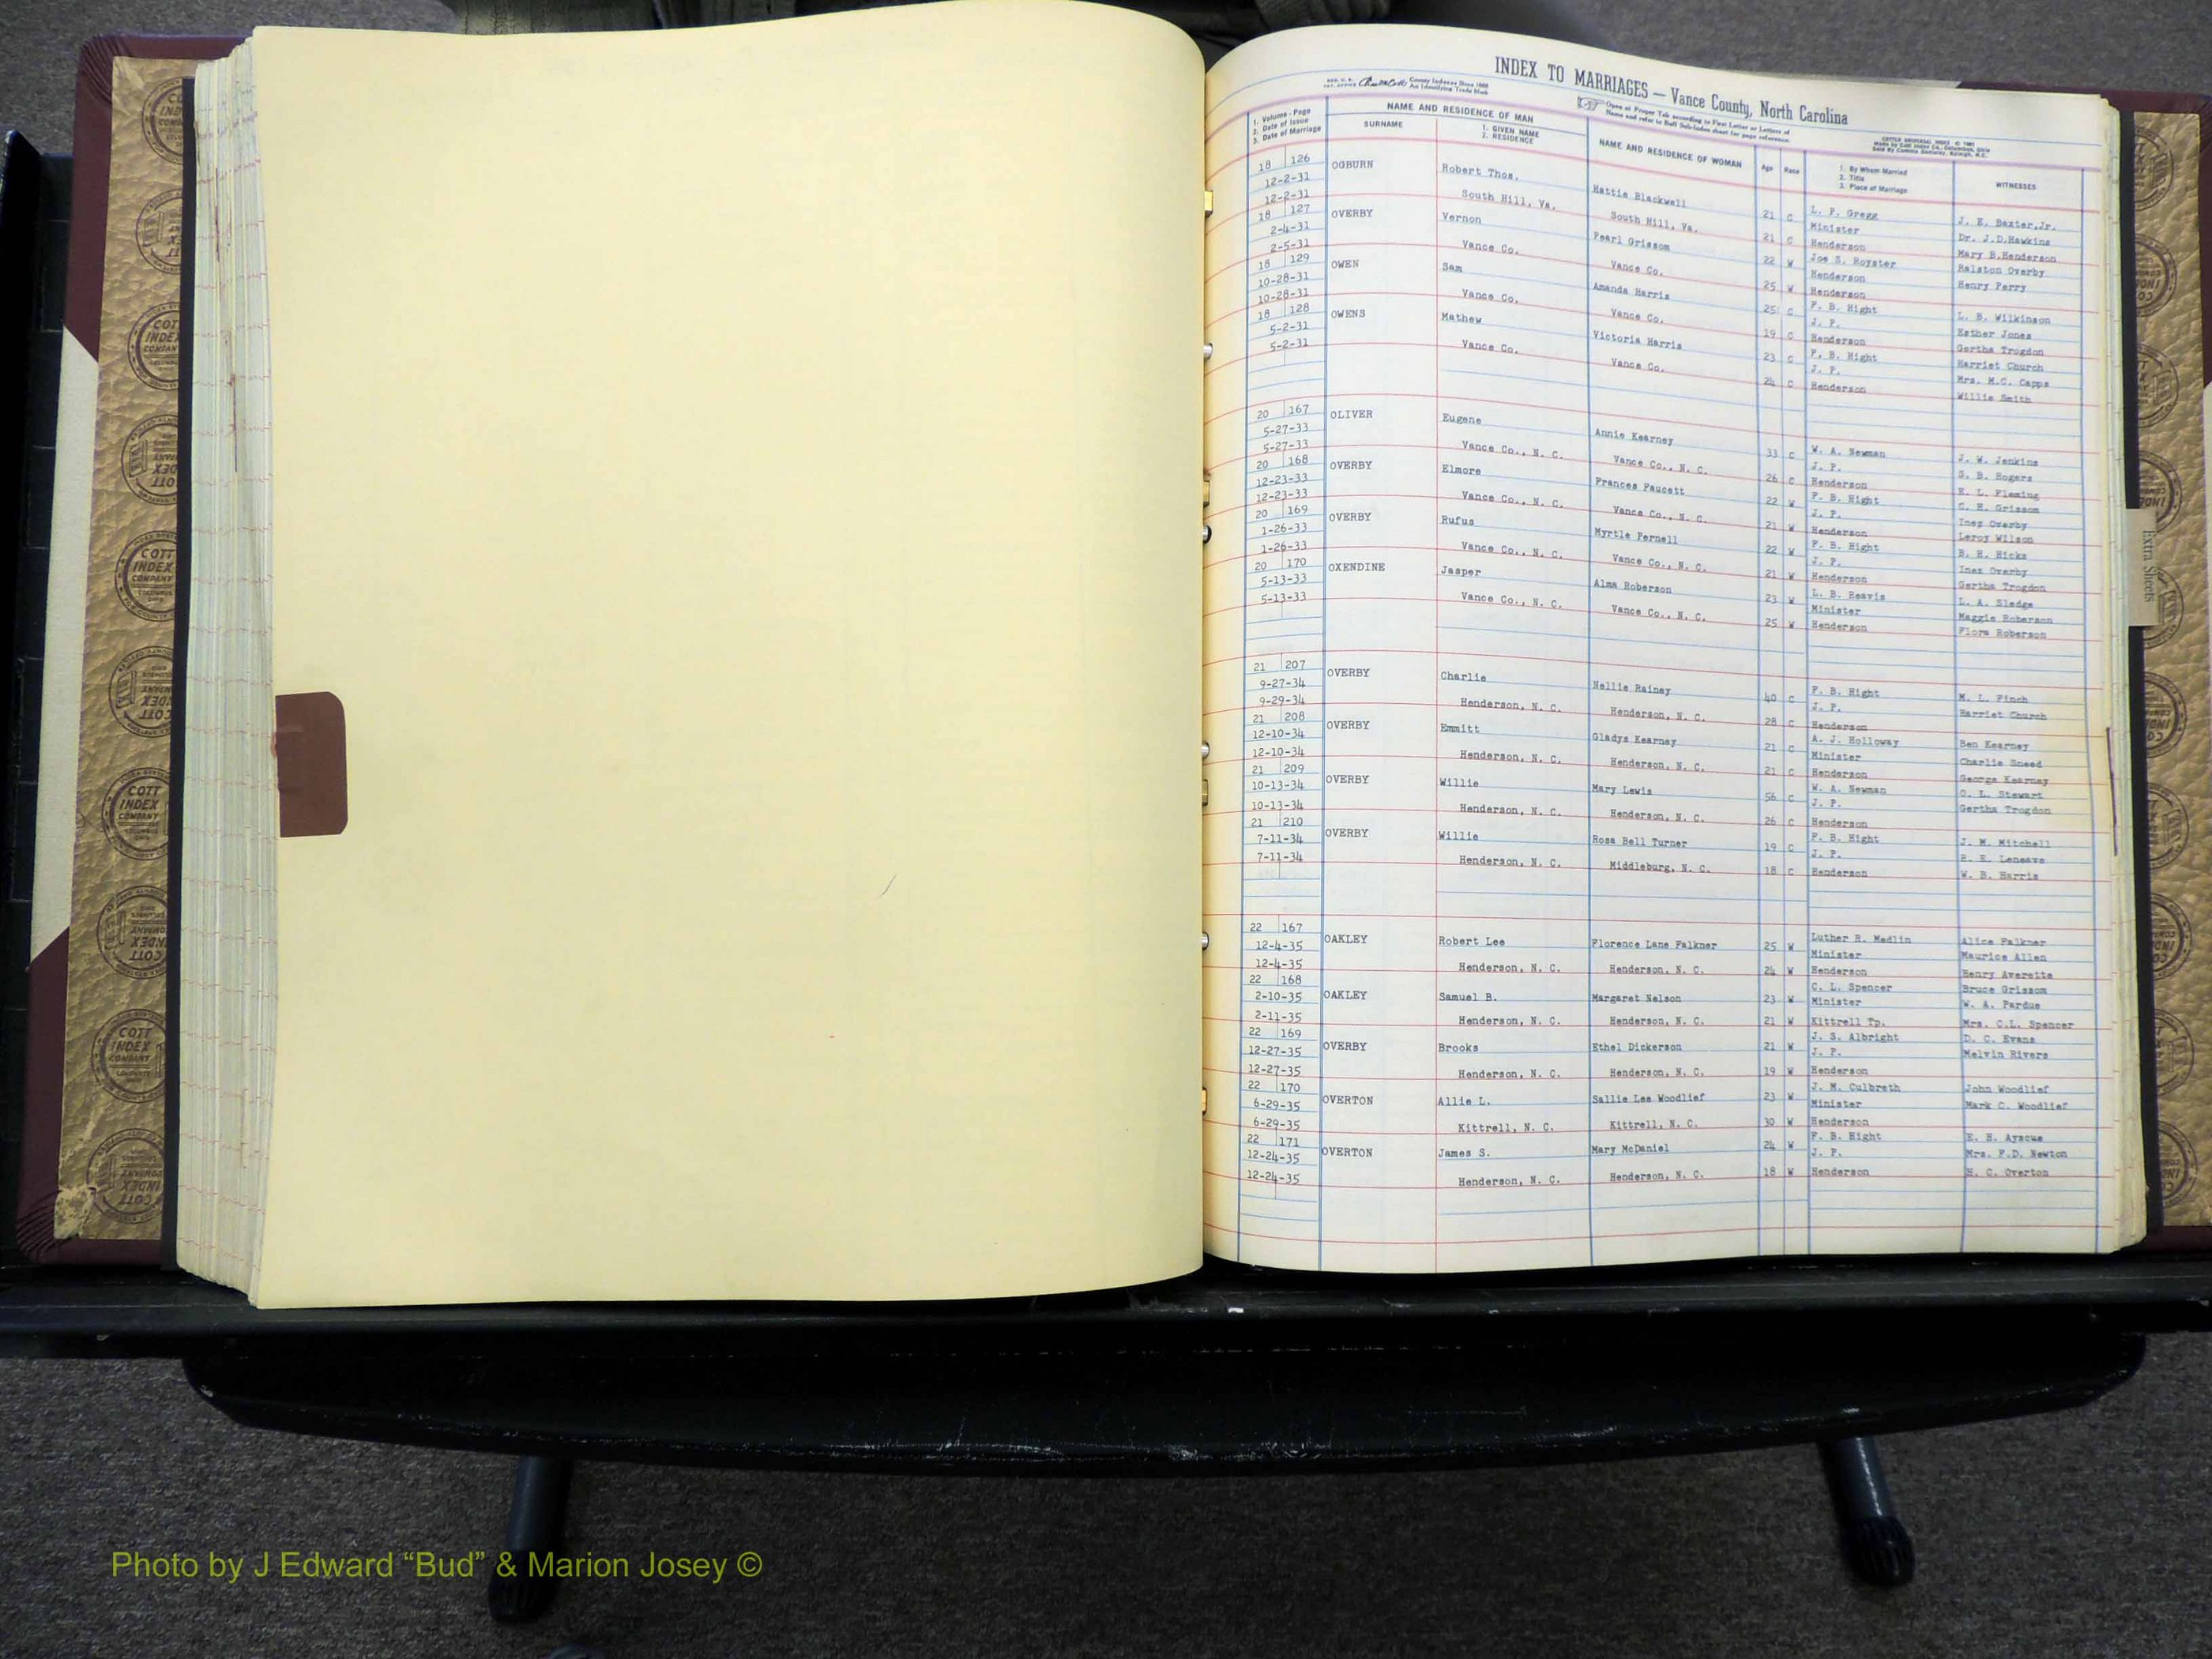 INDEX TO MARRIAGES — Vance County, North Carolina
County Indexes Since 1888
An Identifying Trade Mark
Open at Proper Tab according to First Letter or Letters of
Name and refer to Buff Sub-Index sheet for page reference.
1. Volume - Page
2. Date of Issue
3. Date of Marriage
NAME AND RESIDENCE OF MAN
SURNAME
1. GIVEN NAME
2. RESIDENCE
NAME AND RESIDENCE OF WOMAN
Age Race
1. By Whom Married
2. Title
3. Place of Marriage
WITNESSES
18 126 OGBURN Robert Thos. Hattie Blackwell 21 C L. P. Gregg J. E. Baxter,Jr.
12-2-31 South Hill, Va. South Hill, Va. 21 C Minister Dr. J.D.Hawkins
12-2-31 Henderson Mary B.Henderson
18 127 OVERBY Vernon Pearl Grissom 22 W Joe S. Royster Ralston Overby
2-4-31 Vance Co. Vance Co. 25 W Henderson Henry Perry
2-5-31 Henderson
18 129 OWEN Sam Amanda Harris 25 C F. B. Hight L. B. Wilkinson
10-28-31 Vance Co. Vance Co. 19 C J. P. Esther Jones
10-28-31 Henderson Gertha Trogdon
18 128 OWENS Mathew Victoria Harris 23 C F. B. Hight Harriet Church
5-2-31 Vance Co. Vance Co. 24 C J. P. Mrs. M.C. Capps
5-2-31 Henderson Willie Smith
20 167 OLIVER Eugene Annie Kearney 33 C W. A. Newman J. W. Jenkins
5-27-33 Vance Co., N. C. Vance Co., N. C. 26 C J. P. S. B. Rogers
5-27-33 Henderson E. L. Fleming
20 168 OVERBY Elmore Frances Faucett 22 W F. B. Hight C. H. Grissom
12-23-33 Vance Co., N. C. Vance Co., N. C. 21 W J. P. Inez Overby
12-23-33 Henderson Leroy Wilson
20 169 OVERBY Rufus Myrtle Pernell 22 W F. B. Hight B. H. Hicks
1-26-33 Vance Co., N. C. Vance Co., N. C. 21 W J. P. Inex Overby
1-26-33 Henderson Gertha Trogdon
20 170 OXENDINE Jasper Alma Roberson 23 W L. B. Reavis L. A. Sledge
5-13-33 Vance Co., N. C. Vance Co., N. C. 25 W Minister Maggie Roberson
5-13-33 Henderson Flora Roberson
21 207 OVERBY Charlie Nellie Rainey 40 C F. B. Hight M. L. Finch
9-27-34 Henderson, N. C. Henderson, N. C. 28 C J. P. Harriet Church
9-29-34 Henderson
21 208 OVERBY Emmitt Gladys Kearney 21 C A. J. Holloway Ben Kearney
12-10-34 Henderson, N. C. Henderson, N. C. 21 C Minister Charlie Sneed
12-10-34 Henderson George Kearney
21 209 OVERBY Willie Mary Lewis 56 C W. A. Newman G. L. Stewart
10-13-34 Henderson, N. C. Henderson, N. C. 26 C J. P. Gertha Trogdon
10-13-34 Henderson
21 210 OVERBY Willie Rosa Bell Turner 19 C F. B. Hight J. M. Mitchell
7-11-34 Henderson, N. C. Middleburg, N. C. 18 C J. P. R. E. Leneave
7-11-34 Henderson W. B. Harris
22 167 OAKLEY Robert Lee Florence Lane Falkner 25 W Luther R. Medlin Alice Falkner
12-4-35 Henderson, N. C. Henderson, N. C. 24 W Minister Maurice Allen
12-4-35 Henderson Henry Averette
22 168 OAKLEY Samuel B. Margaret Nelson 23 W C. L. Spencer Bruce Grissom
2-10-35 Henderson, N. C. Henderson, N. C. 21 W Minister W. A. Pardue
2-11-35 Kittrell Tp. Mrs. C.L. Spencer
22 169 OVERBY Brooks Ethel Dickerson 21 W J. S. Albright D. C. Evans
12-27-35 Henderson, N. C. Henderson, N. C. 19 W J. P. Melvin Rivers
12-27-35 Henderson
22 170 OVERTON Allie L. Sallie Lee Woodlief 23 W J. M. Culbreth John Woodlief
6-29-35 Kittrell, N. C. Kittrell, N. C. 30 W Minister Mark C. Woodlief
6-29-35 Henderson
22 171 OVERTON James S. Mary McDaniel 24 W F. B. Hight E. H. Ayscue
12-24-35 Henderson, N. C. Henderson, N. C. 18 W J. P. Mrs. F.D. Newton
12-24-35 Henderson H. C. Overton
Extra Sheets
COTT
INDEX
COMPANY
Photo by J Edward “Bud” & Marion Josey ©